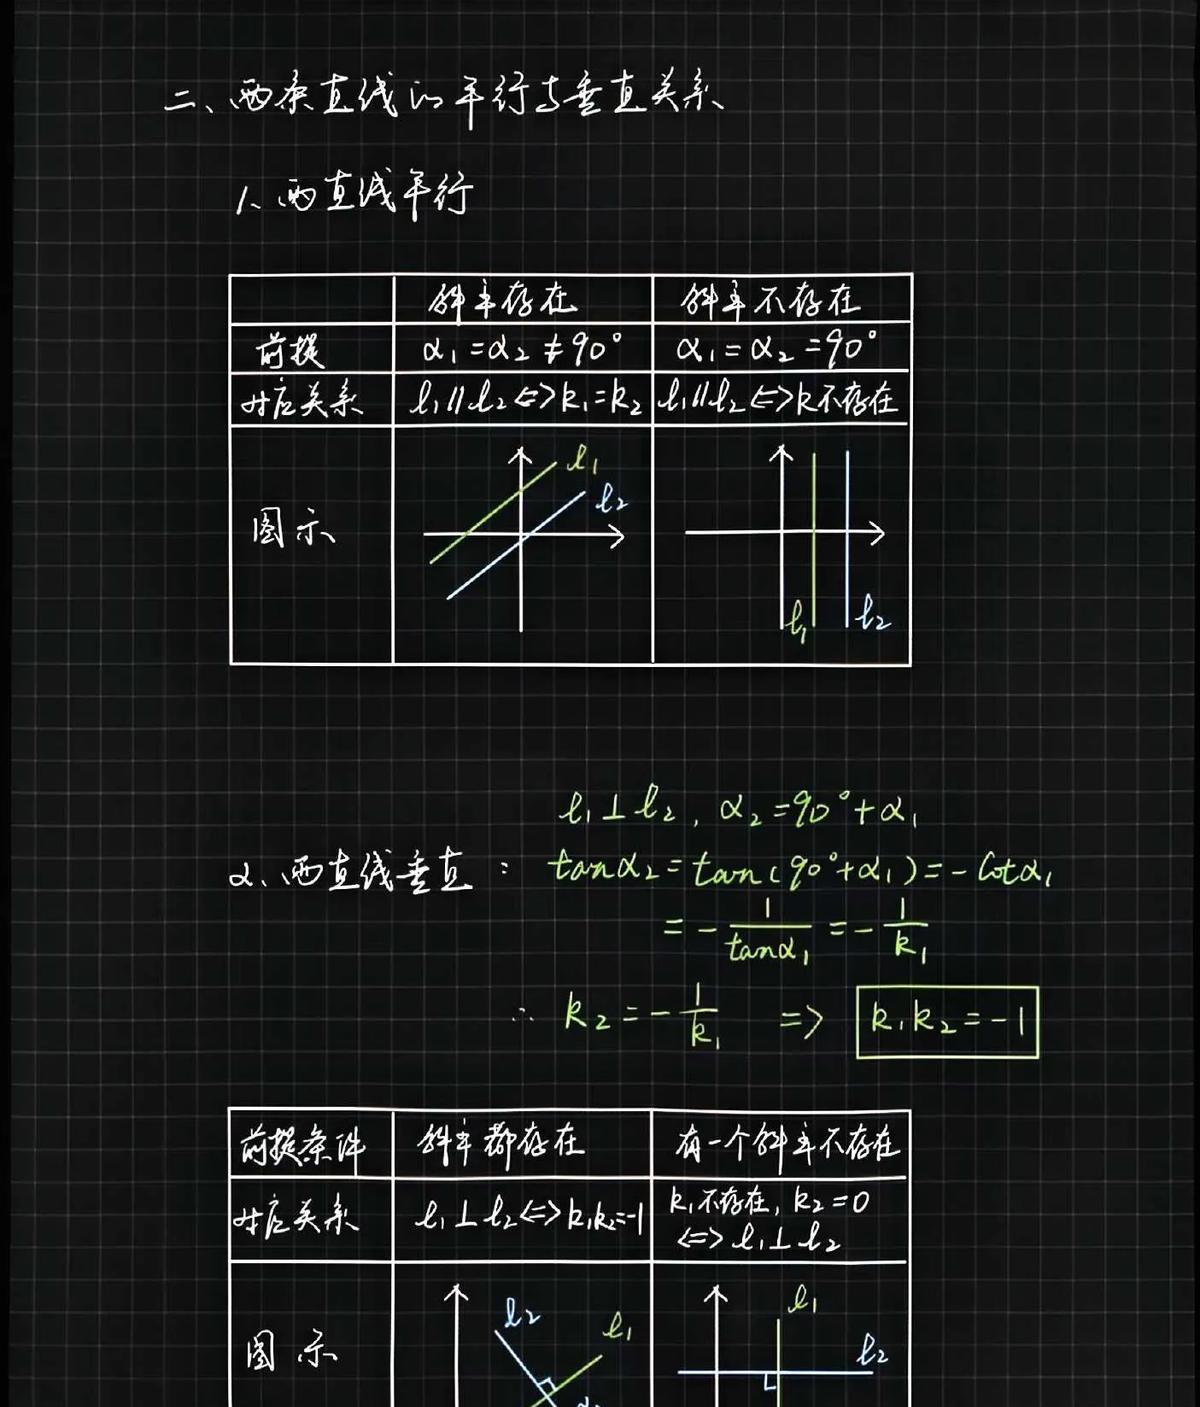 二、两条直线的平行与垂直关系
1、两直线平行
斜率存在 斜率不存在
前提 α₁=α₂≠90° α₁=α₂=90°
对应关系 l₁∥l₂⇔k₁=k₂ l₁∥l₂⇔k不存在
l₁
l₂
图示
l₁ l₂
l₁⊥l₂, α₂=90°+α₁
2、两直线垂直: tanα₂=tan(90°+α₁)=-cotα₁
=-1/tanα₁=-1/k₁
∴ k₂=-1/k₁ => k₁k₂=-1
前提条件 斜率都存在 有一个斜率不存在
对应关系 l₁⊥l₂⇔k₁k₂=-1 k₁不存在, k₂=0
⇔l₁⊥l₂
l₂ l₁ l₁
图示 l₂